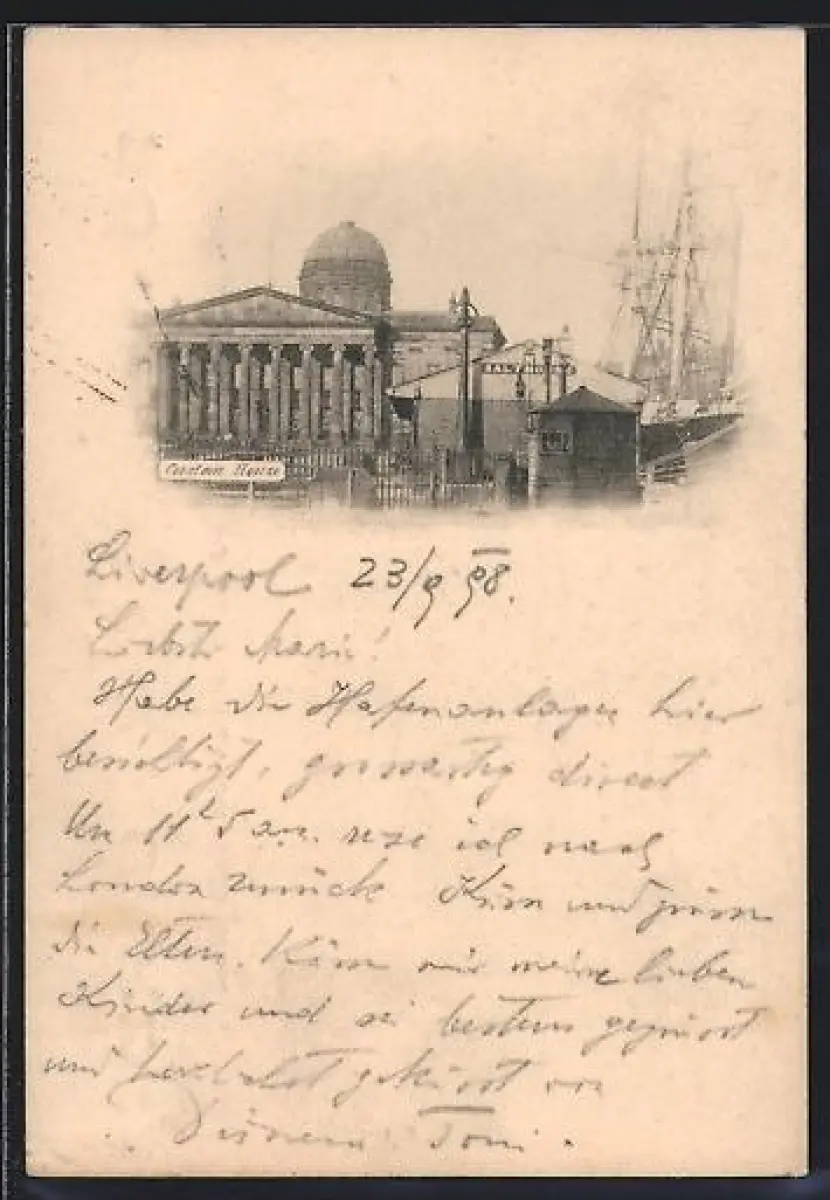 Custom House
Liverpool 23/9 98.
Liebste Marie!
Habe die Hafenanlagen hier
besichtigt, grossartig direct
Um 11 25 am. reise ich nach
London zurück Küsse und grüsse
die Eltern. Küsse mir meine lieben
Kinder und sei bestens gegrüsst
und herzlichst geküsst von
Deinem Toni.